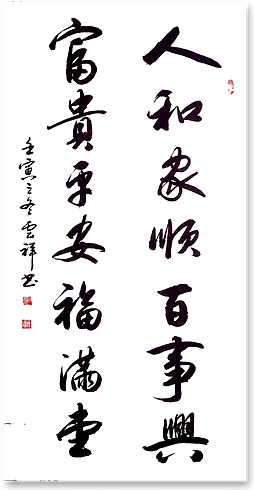 人和家順百事興
富貴平安福滿堂
壬寅之冬雲祥書